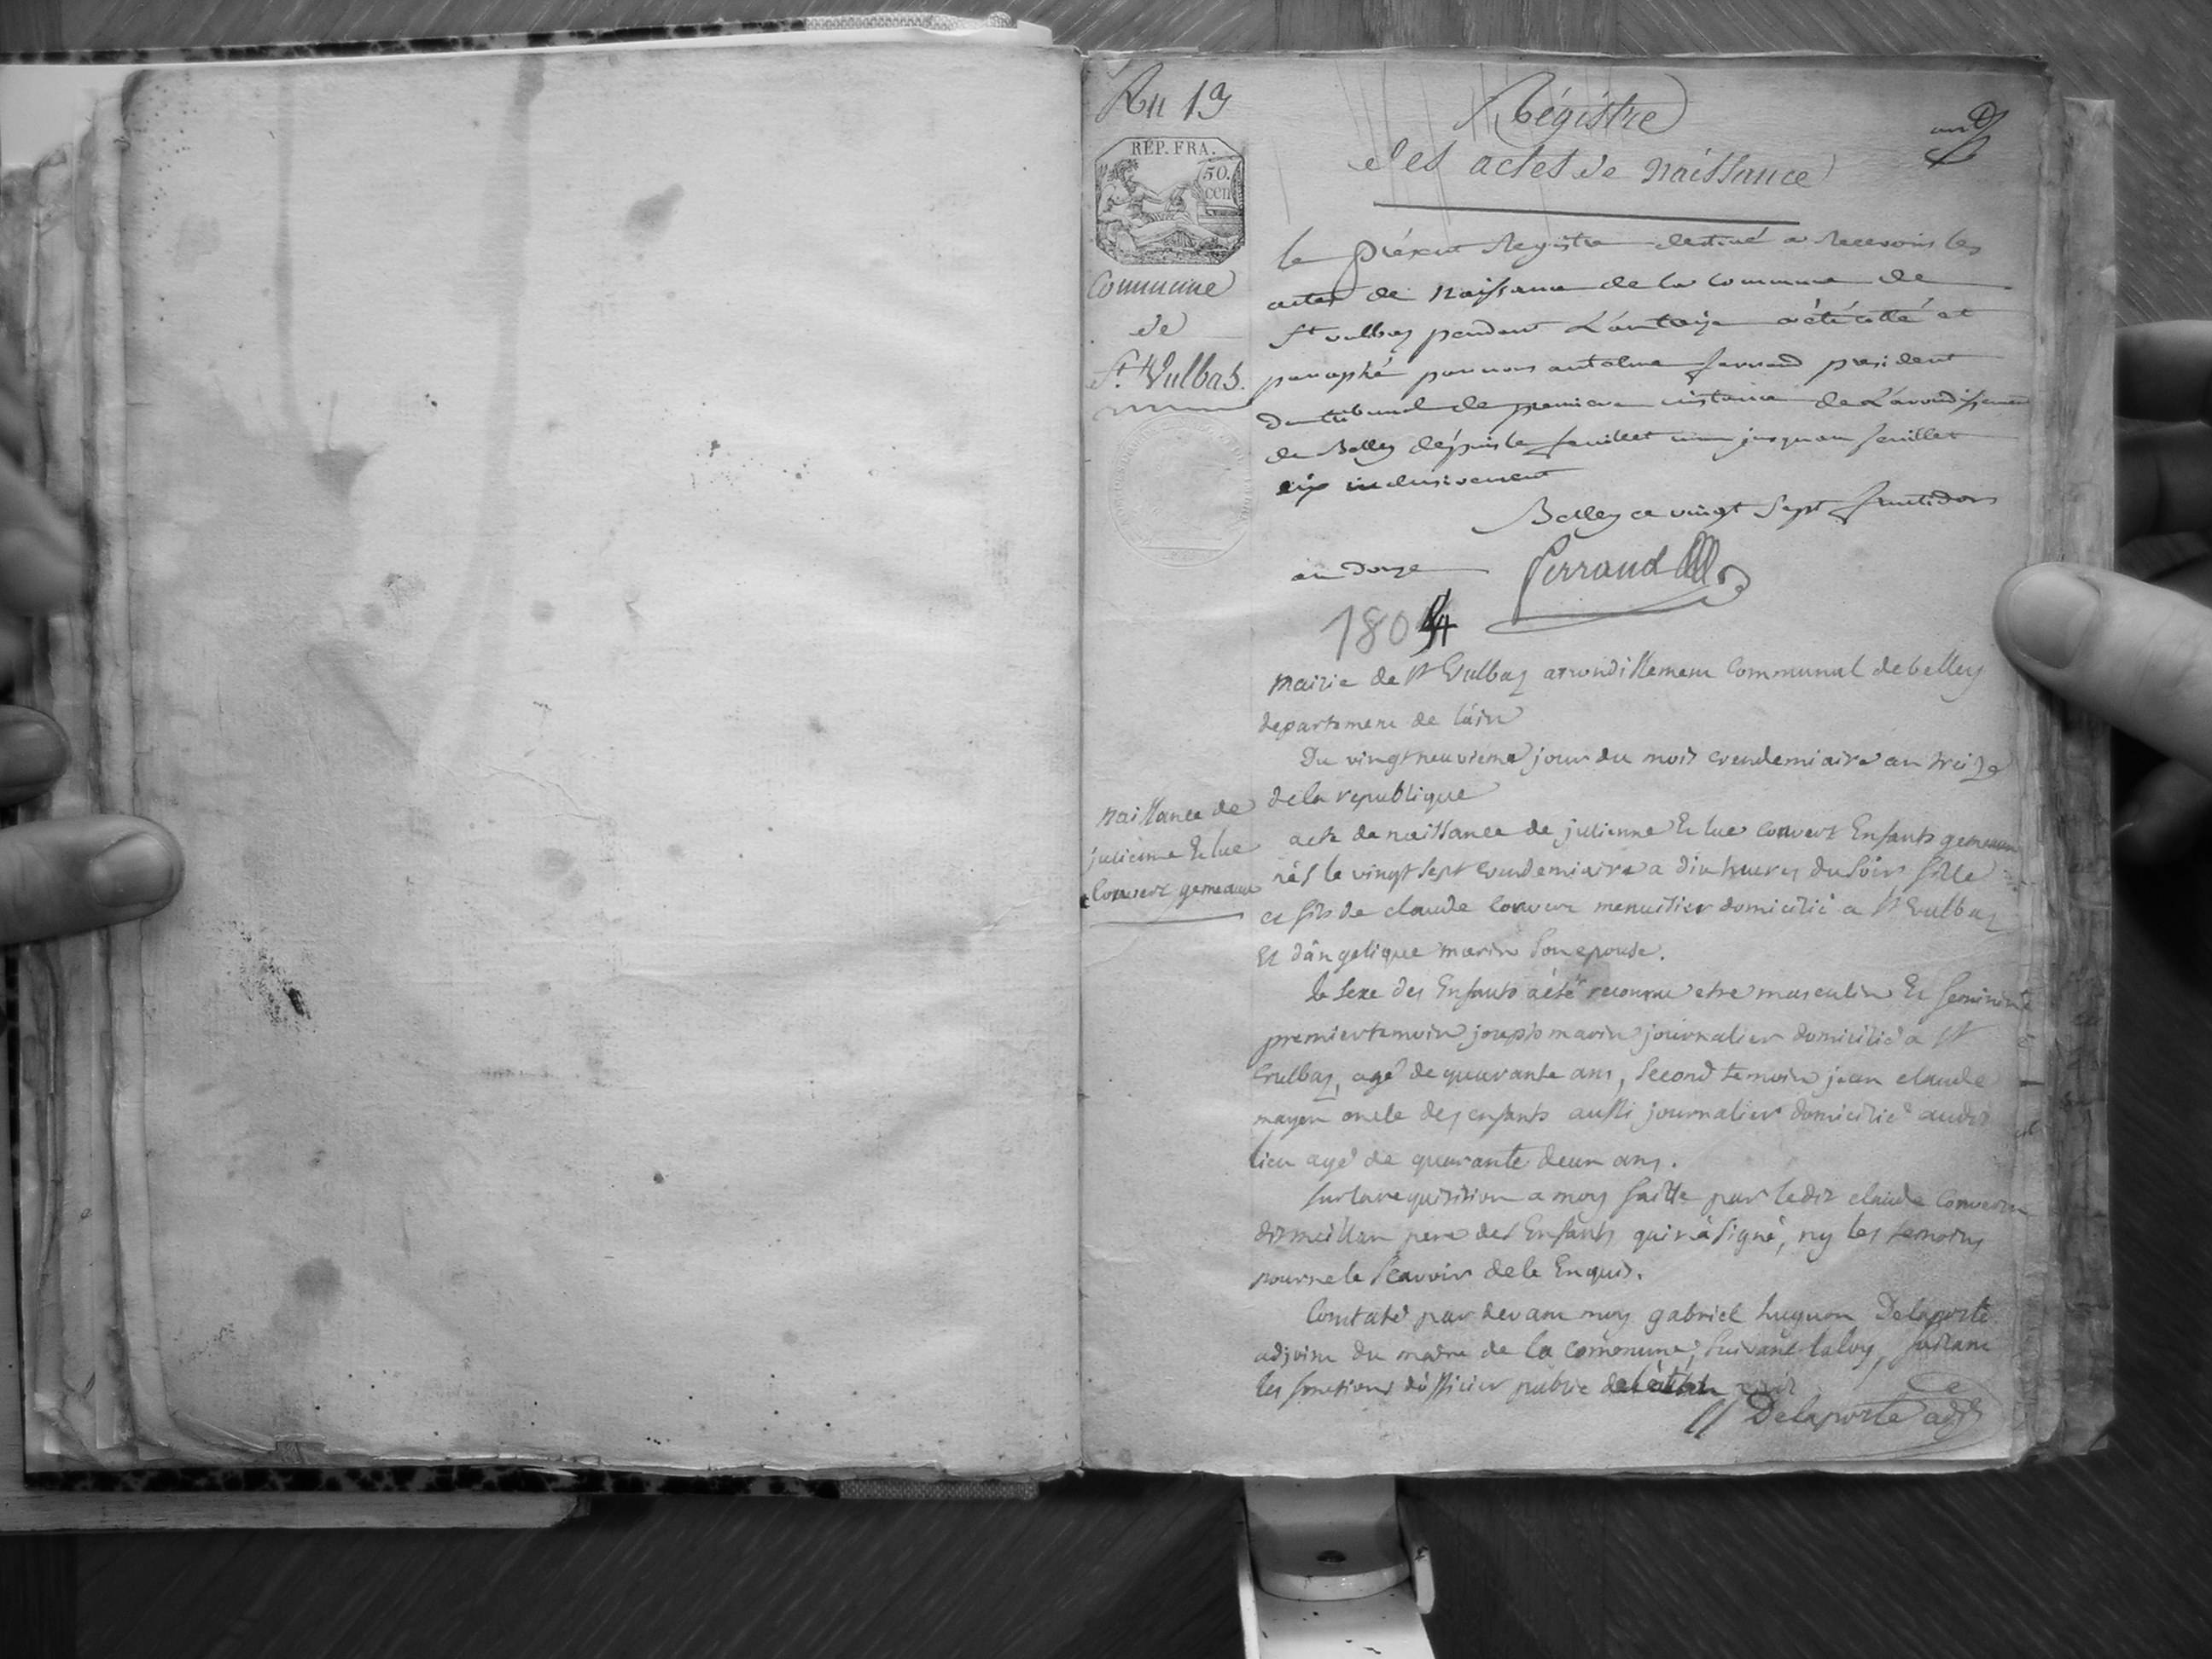 An 13
REP. FRA.
50.
cen
Commune
de
St. Vulbas.
Régistre
des actes de Naissance
le présent Registre destiné a recevoir les
actes de Naissance de la commune de
St vulbas pendant L'an treize a été cotté et
paraphé par nous antelme ferrand president
du tribunal de premiere instance de L'arondissement
de Belley dépuis le feuillet un jusqu'au feuillet
six inclusivement
Belley ce vingt Sept fructidor
an Douze
Ferrand
1804
Mairie de St Vulbas arrondissement Communal de belley
departement de l'ain
Du vingt neuvieme jour du mois vendemiaire an treize
de la republique
naissance de
julienne & luc
Convert gemeaux
acte de naissance de julienne & luc Convert Enfants gemeaux
nés le vingt sept vendemiaire a dix heures du soir fille
et fils de claude Convert menuisier domicilié a St Vulbas
Et d'angelique marin son epouse.
le sexe des Enfants a été reconnu etre masculin Et feminin
premier temoin joseph marin journalier domicilié a St
Vulbas, agé de quarante ans, second temoin jean claude
mayen oncle des enfants aussi journalier domicilié audit
lieu agé de quarante deux ans.
sur la requisition a moy faitte par ledit claude Convert
pere des Enfants qui n'a signé, ny les temoins
pour ne le scavoir de le Enquis.
Constaté par devant moy gabriel huguon Delaporte
adjoint du maire de la commune, suivant la loy, faisant
les fonctions d'officier public de l'état civil
Delaporte adj